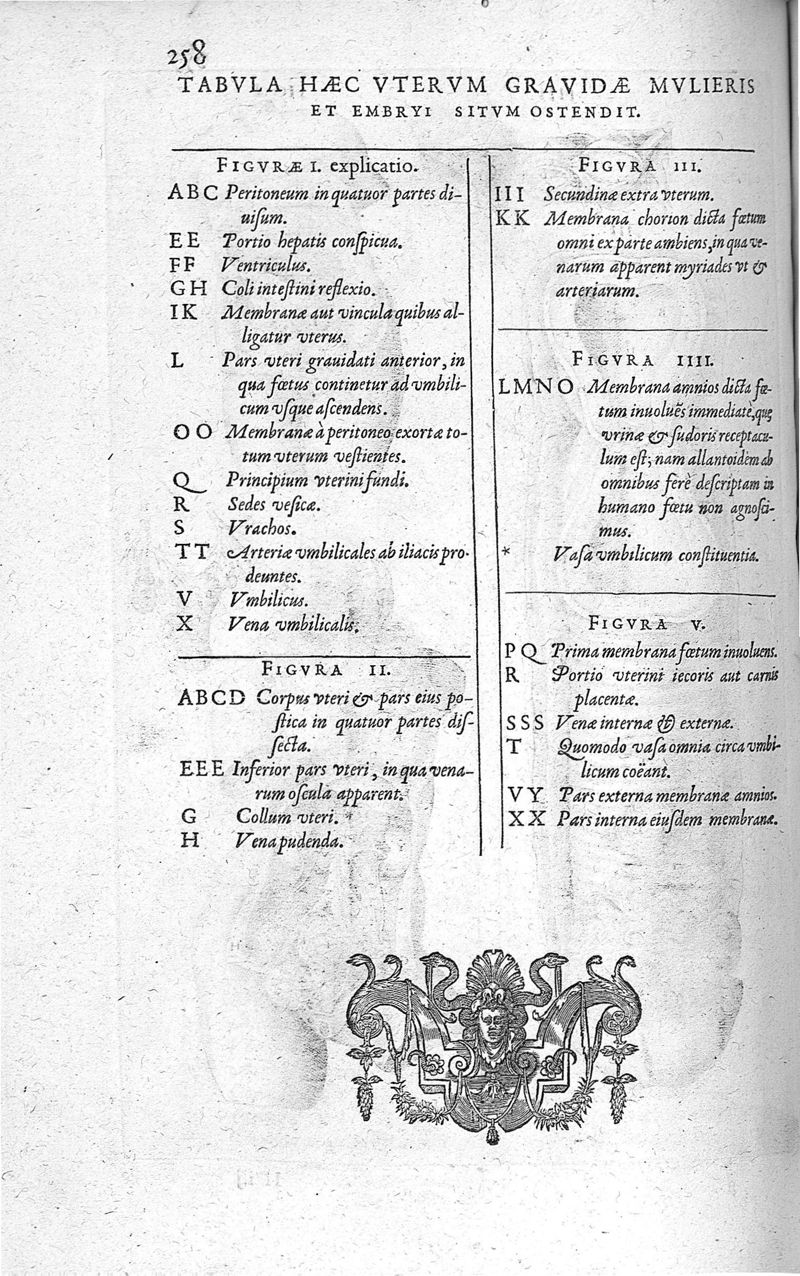 258
TABVLA HÆC VTERVM GRAVIDÆ MVLIERIS
ET EMBRYI SITVM OSTENDIT.
FIGVRÆ I. explicatio.
ABC Peritoneum in quatuor partes di-
uisum.
EE Portio hepatis conſpicua.
FF Ventriculus.
GH Coli inteſtini reflexio.
IK Membranæ aut vincula quibus al-
ligatur vterus.
L Pars vteri grauidati anterior, in
qua fœtus continetur ad vmbili-
cum vſque aſcendens.
OO Membranæ à peritoneo exortæ to-
tum vterum veſtientes.
Q Principium vterini fundi.
R Sedes veſicæ.
S Vrachos.
TT Arteriæ vmbilicales ab iliacis pro-
deuntes.
V Vmbilicus.
X Vena vmbilicalis.
FIGVRA II.
ABCD Corpus vteri & pars eius po-
ſtica in quatuor partes diſ-
ſecta.
EEE Inferior pars vteri, in qua vena-
rum oſcula apparent.
G Collum vteri.
H Vena pudenda.
FIGVRA III.
III Secundinæ extra vterum.
KK Membrana chorion dicta fœtum
omni ex parte ambiens, in qua ve-
narum apparent myriades vt &
arteriarum.
FIGVRA IIII.
LMNO Membrana amnios dicta fœ-
tum inuoluẽs immediatè, quę
vrinæ & ſudoris receptacu-
lum eſt; nam allantoidem ab
omnibus ferè deſcriptam in
humano fœtu non agnoſci-
mus.
* Vaſa vmbilicum conſtituentia.
FIGVRA V.
PQ Prima membrana fœtum inuoluens.
R Portio vterini iecoris aut carnis
placentæ.
SSS Venæ internæ & externæ.
T Quomodo vaſa omnia circa vmbi-
licum coëant.
VY Pars externa membranæ amnios.
XX Pars interna eiuſdem membranæ.